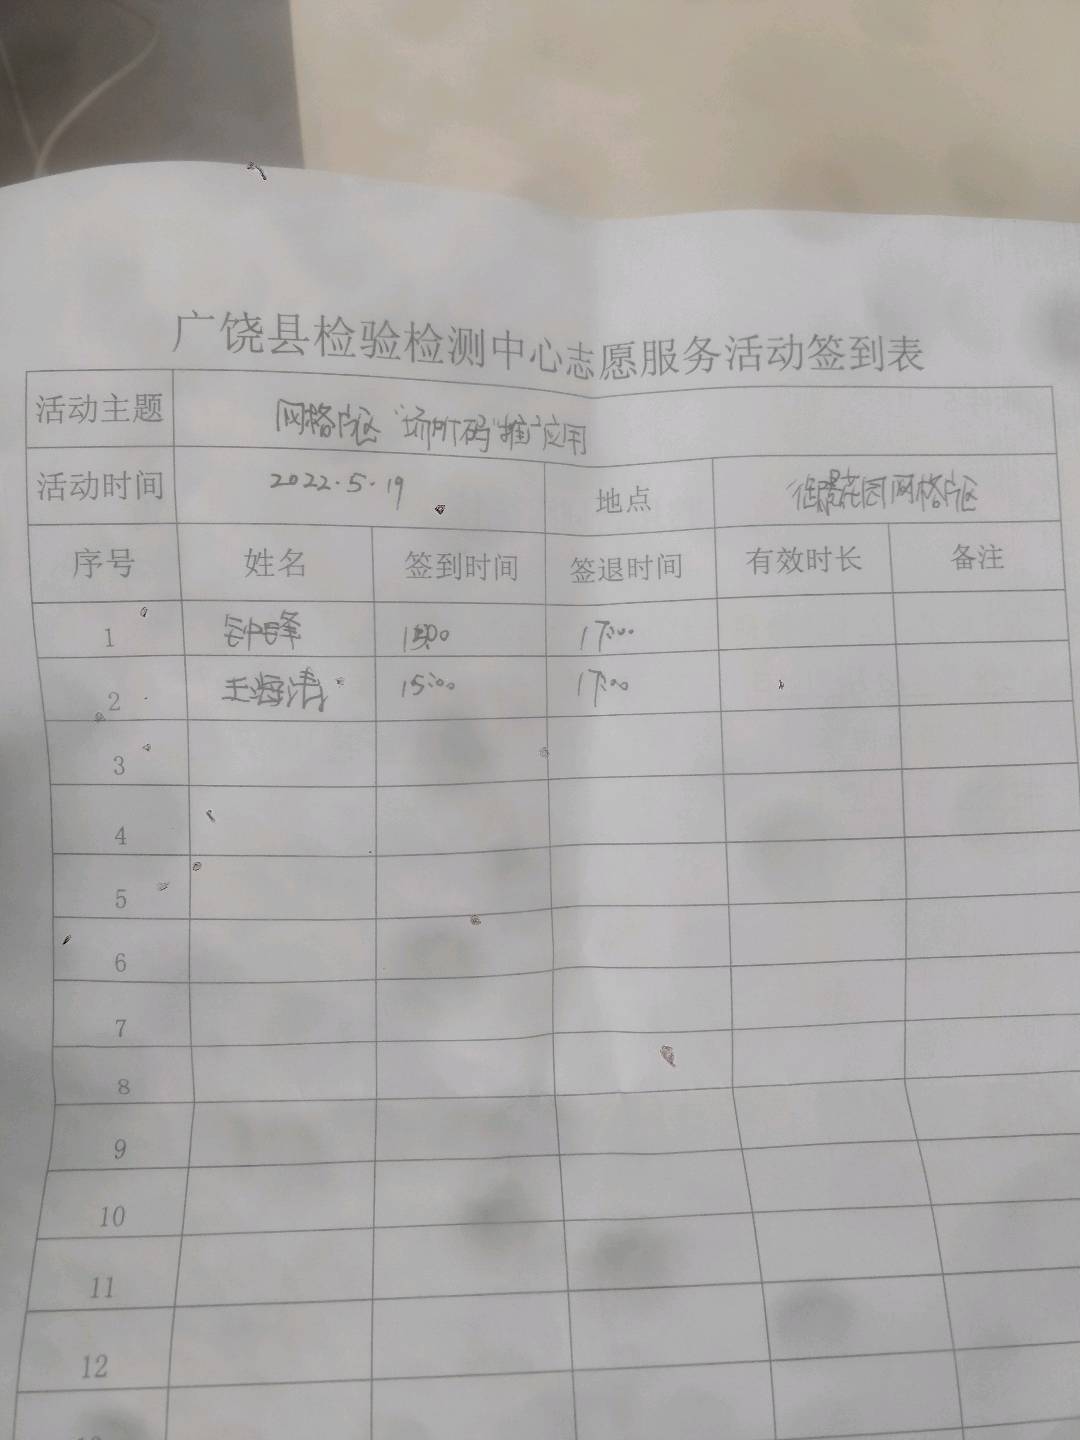 广饶县检验检测中心志愿服务活动签到表
活动主题 网格片区"场所码"推广应用
活动时间 2022.5.19 地点 花园网格片区
序号 姓名 签到时间 签退时间 有效时长 备注
1 钟峰 15:00 17:00
2 王海清 15:00 17:00
3
4
5
6
7
8
9
10
11
12